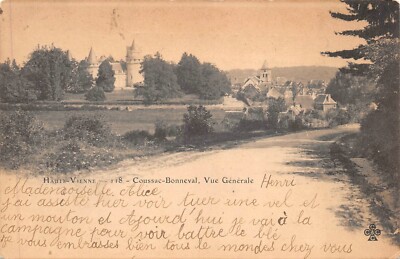 HAUTE-VIENNE — 118 - COUSSAC-BONNEVAL, Vue Générale
Mademoiselle Alice Henri
j'ai assesté hier voir tuer une vel et
un mouton et Ajourd'hui je vai à la
campagne pour voir battre le blé
je vous embrasses bien tous le mondes chez vous